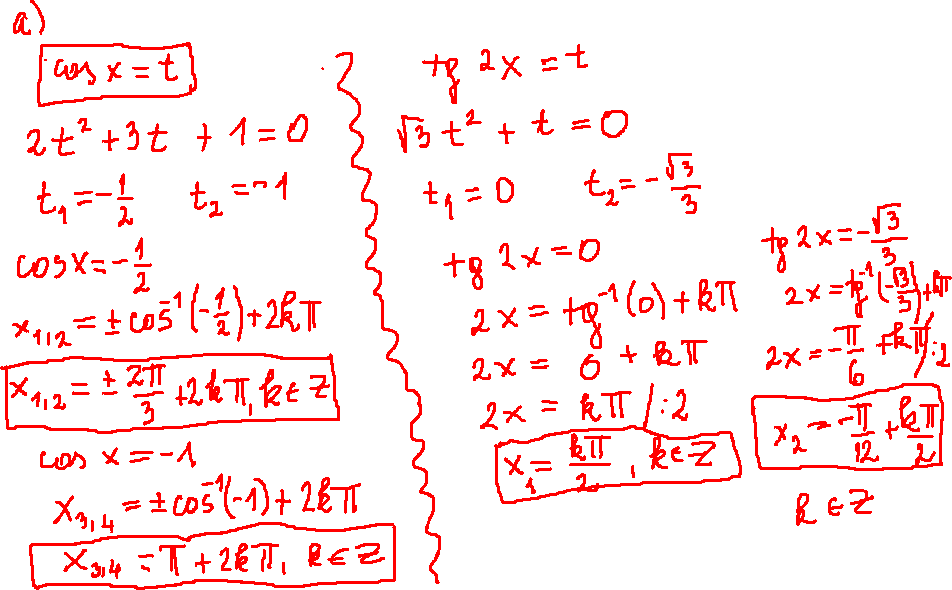 a)
cos x = t
2t² + 3t + 1 = 0
t₁ = -1/2 t₂ = -1
cos x = -1/2
x₁,₂ = ± cos⁻¹(-1/2) + 2kπ
x₁,₂ = ± 2π/3 + 2kπ, k ∈ Z
cos x = -1
x₃,₄ = ± cos⁻¹(-1) + 2kπ
x₃,₄ = π + 2kπ, k ∈ Z
tg 2x = t
√3 t² + t = 0
t₁ = 0 t₂ = -√3/3
tg 2x = 0
2x = tg⁻¹(0) + kπ
2x = 0 + kπ
2x = kπ /:2
x₁ = kπ/2, k ∈ Z
tg 2x = -√3/3
2x = tg⁻¹(-√3/3) + kπ
2x = -π/6 + kπ /:2
x₂ = -π/12 + kπ/2
k ∈ Z